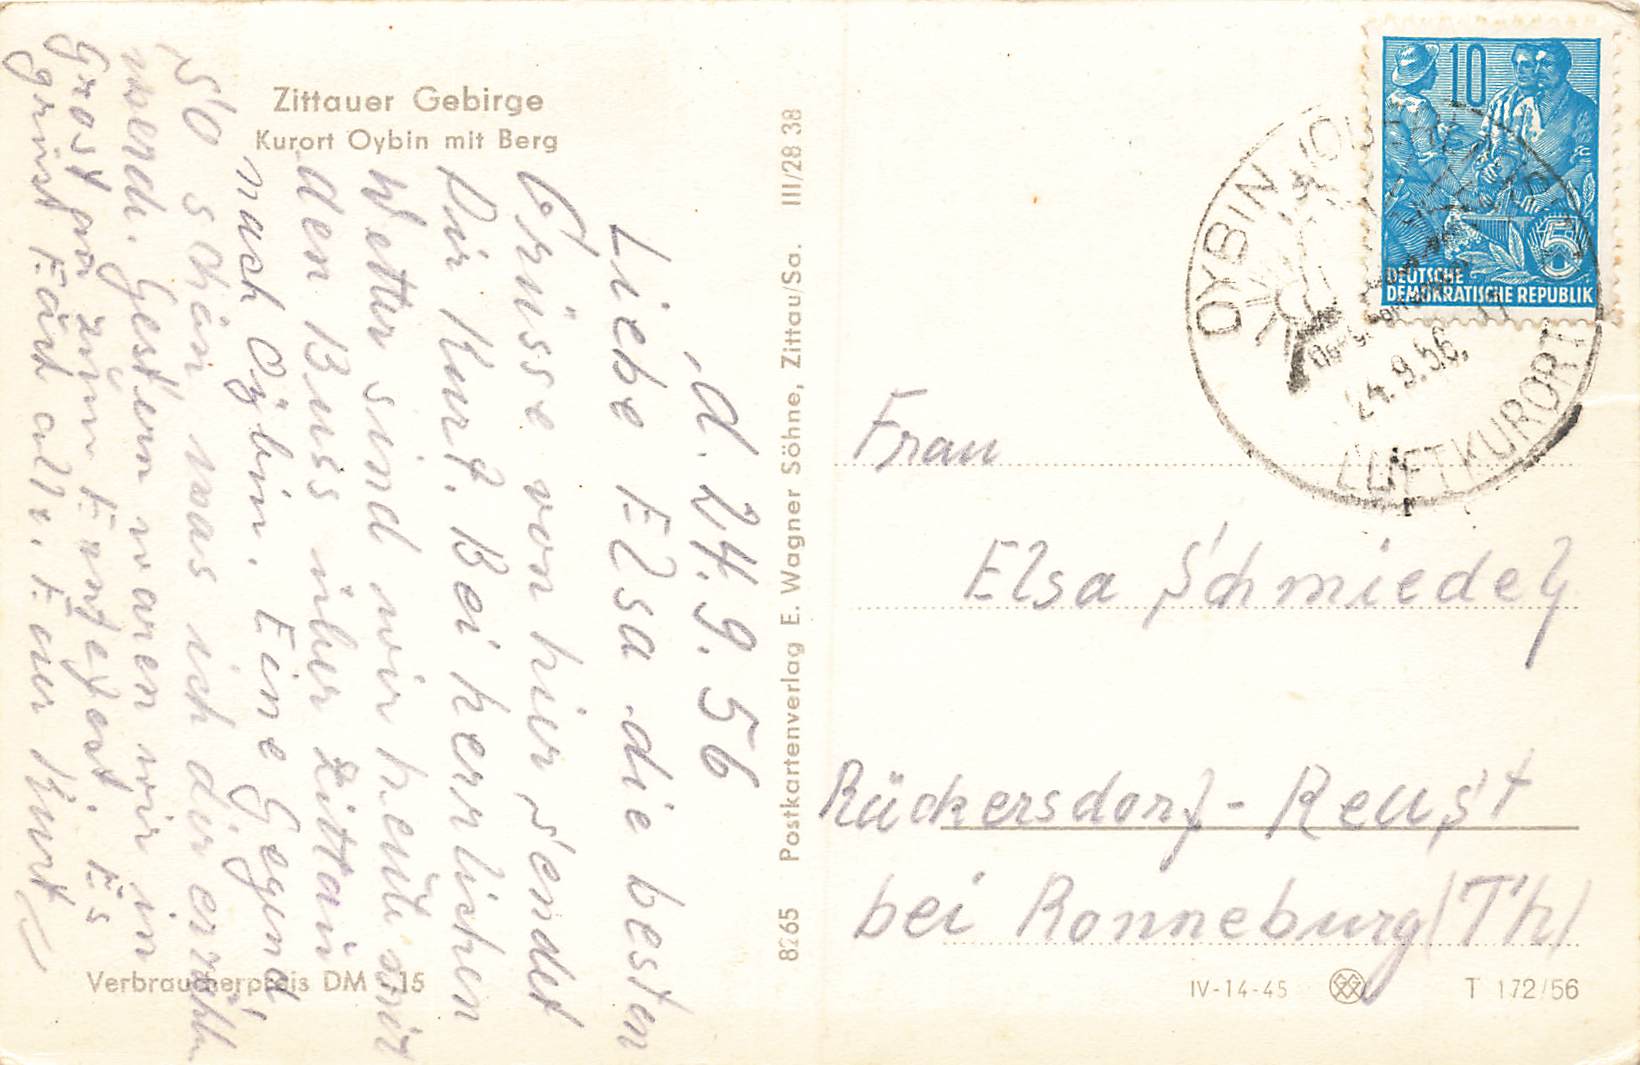 Zittauer Gebirge
Kurort Oybin mit Berg
d. 24.9.56
Liebe Elsa die besten
Grüsse von hier sendet
Dir Kurt. Bei herrlichen
Wetter sind wir heute mit
den Buss über Zittau
nach Oybin. Eine Gegend
so schön was ich dir erzähl
werde. Gestern waren wir in
zum Erntefest. Es
grüsst Euch alle. Euer Kurt
Verbraucherpreis DM 0,15
8265 Postkartenverlag E. Wagner Söhne, Zittau/Sa. III/28 38
10
5
DEUTSCHE
DEMOKRATISCHE REPUBLIK
OYBIN
24.9.56.
LUFTKURORT
Frau
Elsa Schmiedel
Rückersdorf-Reust
bei Ronneburg (Th)
IV-14-45
T 172/56